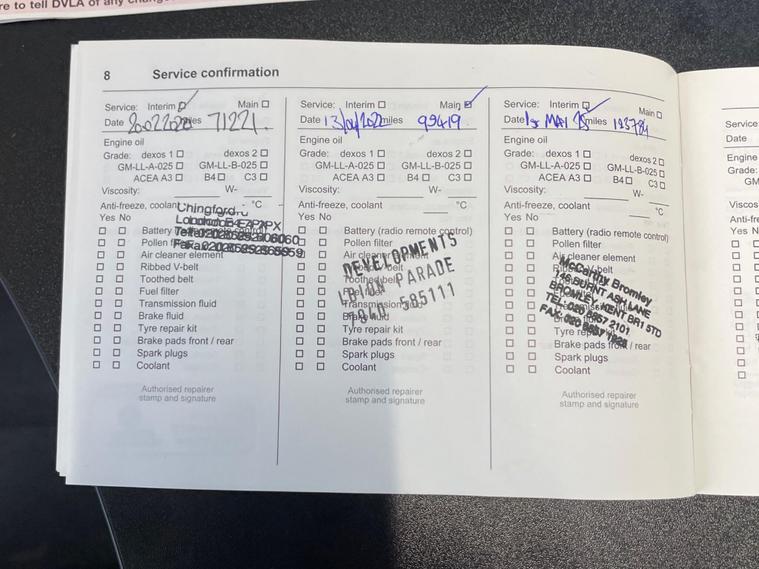 re to tell DVLA of any chang
8 Service confirmation
Service: Interim Main
Date miles 71221.
Engine oil
Grade: dexos 1 dexos 2
GM-LL-A-025 GM-LL-B-025
ACEA A3 B4 C3
Viscosity: W-
Anti-freeze, coolant - °C
Yes No
Battery
Pollen
Air cleaner element
Ribbed V-belt
Toothed belt
Fuel filter
Transmission fluid
Brake fluid
Tyre repair kit
Brake pads front / rear
Spark plugs
Coolant
Chingford
Authorised repairer
stamp and signature
Service: Interim Main
Date 13/04/2022 miles 99419
Engine oil
Grade: dexos 1 dexos 2
GM-LL-A-025 GM-LL-B-025
ACEA A3 B4 C3
Viscosity: W-
Anti-freeze, coolant °C
Yes No
Battery (radio remote control)
Pollen filter
Air cleaner
Toothed belt
Transmission
Brake fluid
Tyre repair kit
Brake pads front / rear
Spark plugs
Coolant
DEVELOPMENTS
PARADE
585111
Authorised repairer
stamp and signature
Service: Interim Main
Date MAY 25 miles 123784
Engine oil
Grade: dexos 1 dexos 2
GM-LL-A-025 GM-LL-B-025
ACEA A3 B4 C3
Viscosity: W-
Anti-freeze, coolant °C
Yes No
Battery (radio remote control)
Pollen filter
Air cleaner element
V-belt
Tyre
Brake pads front / rear
Spark plugs
Coolant
McCarthy Bromley
146 BURNT ASH LANE
BROMLEY, KENT BR1 5TD
TEL: 020 8857 2101
Authorised repairer
stamp and signature
Service
Date
Engine
Grade:
GM
Viscos
Anti-fre
Yes N